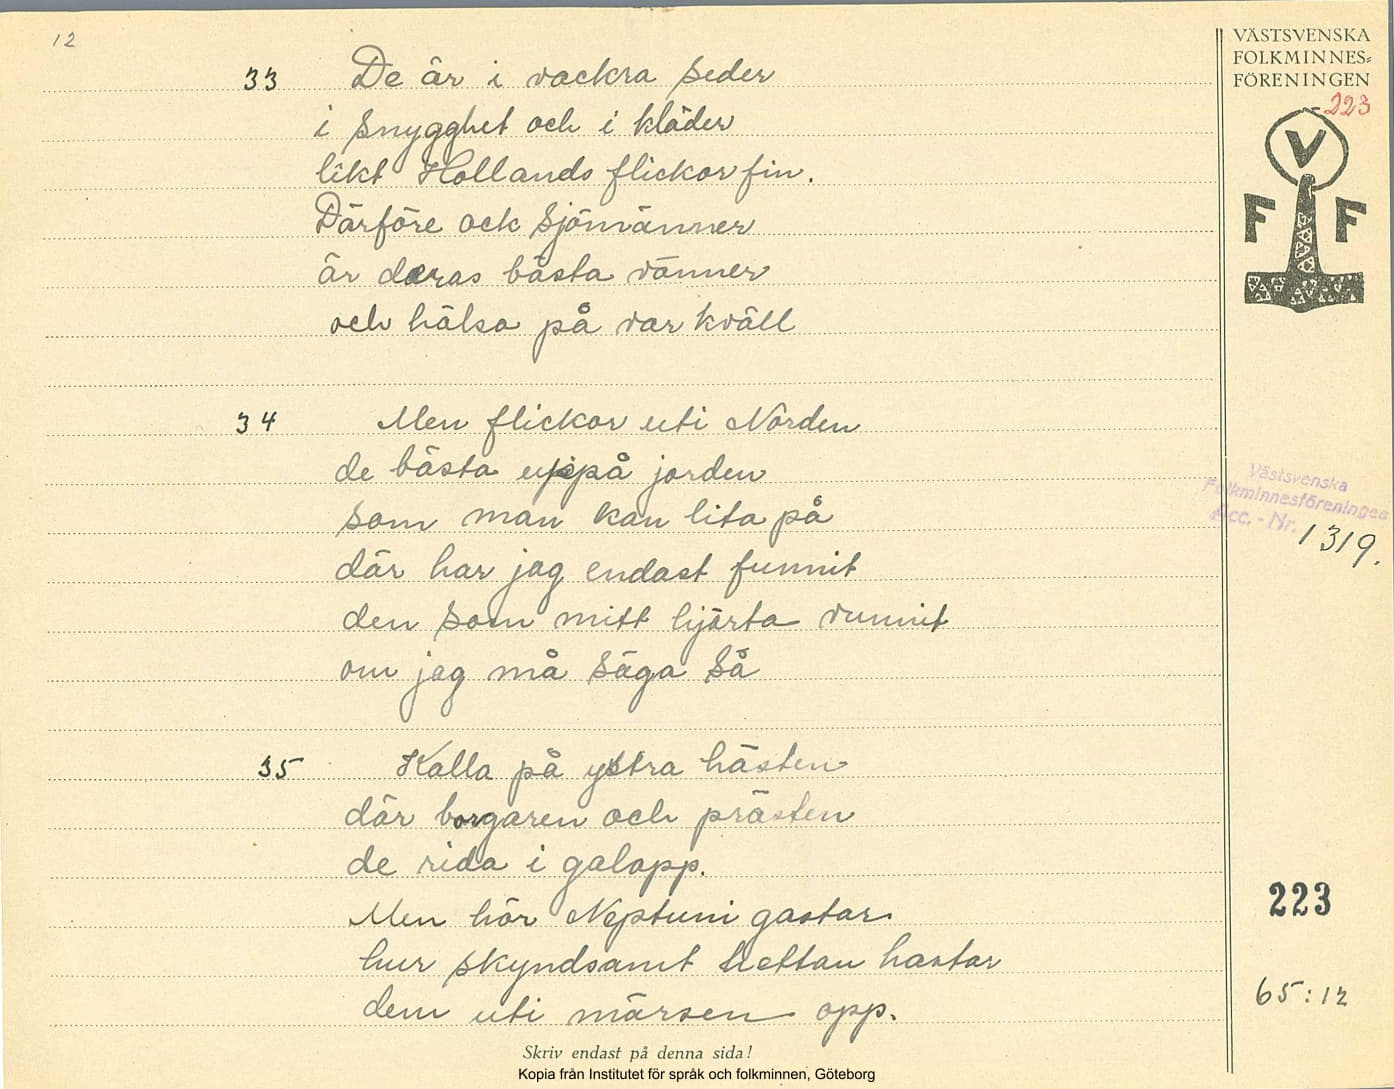 12
VÄSTSVENSKA
FOLKMINNES=
FÖRENINGEN
223
V
F F
33 De är i vackra seder
i snygghet och i kläder
likt Hollands flickor fin.
Därföre ock sjömänner
är deras bästa vänner
och hälsa på var kväll
34 Men flickor uti Norden
de bästa uppå jorden
som man kan lita på
där har jag endast funnit
den som mitt hjärta vunnit
om jag må säga så
Västsvenska
Folkminnesföreningen
Acc. - Nr. 1319.
35 Kalla på ystra hästen
där borgaren och prästen
de rida i galopp.
Men hör Neptuni gastar
hur skyndsamt hastar
dem uti märsen opp.
223
65:12
Skriv endast på denna sida!
Kopia från Institutet för språk och folkminnen, Göteborg